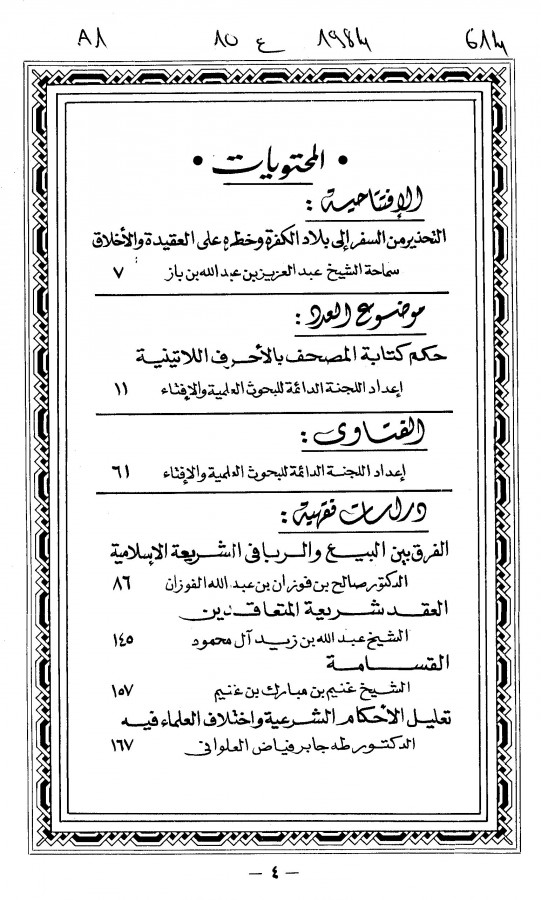 A1 10 ع 1984 614
• المحتويات •
الإفتتاحية :
التحذير من السفر إلى بلاد الكفرة وخطره على العقيدة والأخلاق
سماحة الشيخ عبد العزيز بن عبد الله بن باز ٧
موضوع العدد :
حكم كتابة المصحف بالأحرف اللاتينية
إعداد اللجنة الدائمة للبحوث العلمية والإفتاء ١١
الفتاوى :
إعداد اللجنة الدائمة للبحوث العلمية والإفتاء ٦١
دراسات فقهية :
الفرق بين البيع والربا في الشريعة الإسلامية
الدكتور صالح بن فوزان بن عبد الله الفوزان ٨٦
العقد شريعة المتعاقدين
الشيخ عبد الله بن زيد آل محمود ١٤٥
القسامة
الشيخ غنيم بن مبارك بن غنيم ١٥٧
تعليل الأحكام الشرعية واختلاف العلماء فيه
الدكتور طه جابر فياض العلواني ١٦٧
— ٤ —